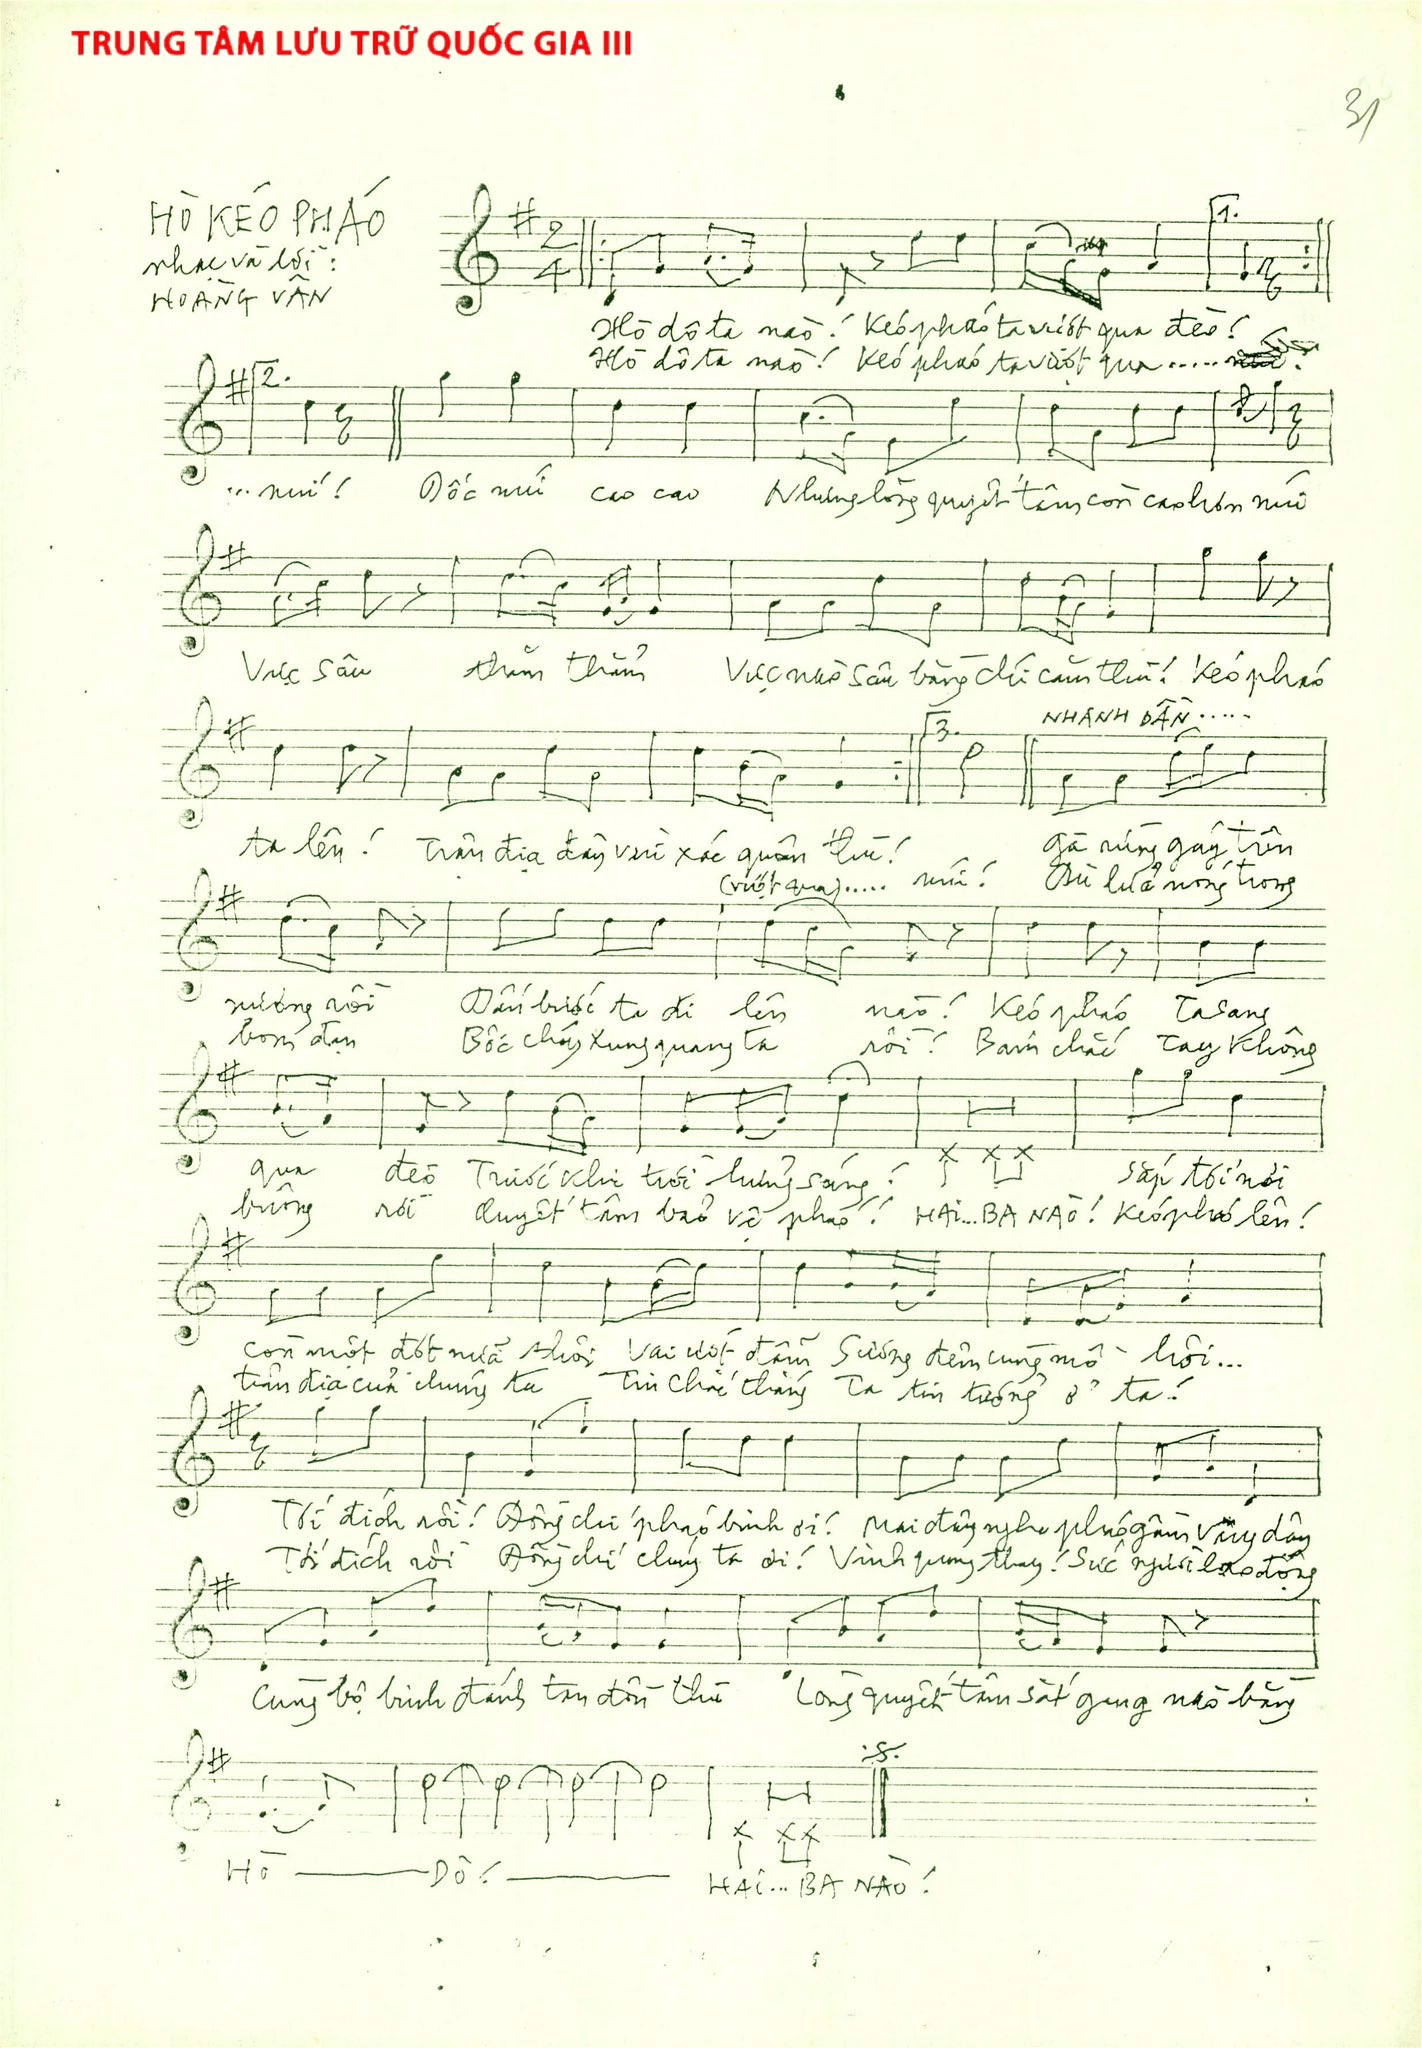 TRUNG TÂM LƯU TRỮ QUỐC GIA III
31
HÒ KÉO PHÁO
nhạc và lời:
HOÀNG VÂN
2
4
1.
Hò dô ta nào! Kéo pháo ta vượt qua đèo!
Hò dô ta nào! Kéo pháo ta vượt qua .....
2.
... núi! Dốc núi cao cao Nhưng lòng quyết tâm còn cao hơn núi
Vực sâu thăm thẳm Vực nào sâu bằng chí căm thù! Kéo pháo
NHANH DẦN .....
3.
ta lên! Trận địa đây vùi xác quân thù! Gà rừng gáy trên
(vượt qua)..... núi! Dù lửa nóng trong
nương rồi Dấn bước ta đi lên nào! Kéo pháo ta sang
bom đạn Bốc cháy xung quang ta rồi! Bám chắc tay không
qua đèo Trước khi trời hửng sáng! Sắp tới nơi
buông rời Quyết tâm bảo vệ pháo! HAI... BA NÀO! Kéo pháo lên!
còn một đốt nữa thôi Vai ướt đẫm Sương đêm cùng mồ hôi...
trận địa của chúng ta Tin chắc thắng Ta tin tưởng ở ta!
Tới đích rồi! Đồng chí pháo binh ơi! Mai đây nghe pháo gầm vùng dậy
Tới đích rồi Đồng chí chúng ta ơi! Vinh quang thay! Sức người lao động
Cùng bộ binh đánh tan đồn thù Lòng quyết tâm sắt gang nào bằng
.S.
HÒ — DÔ! — HAI... BA NÀO!